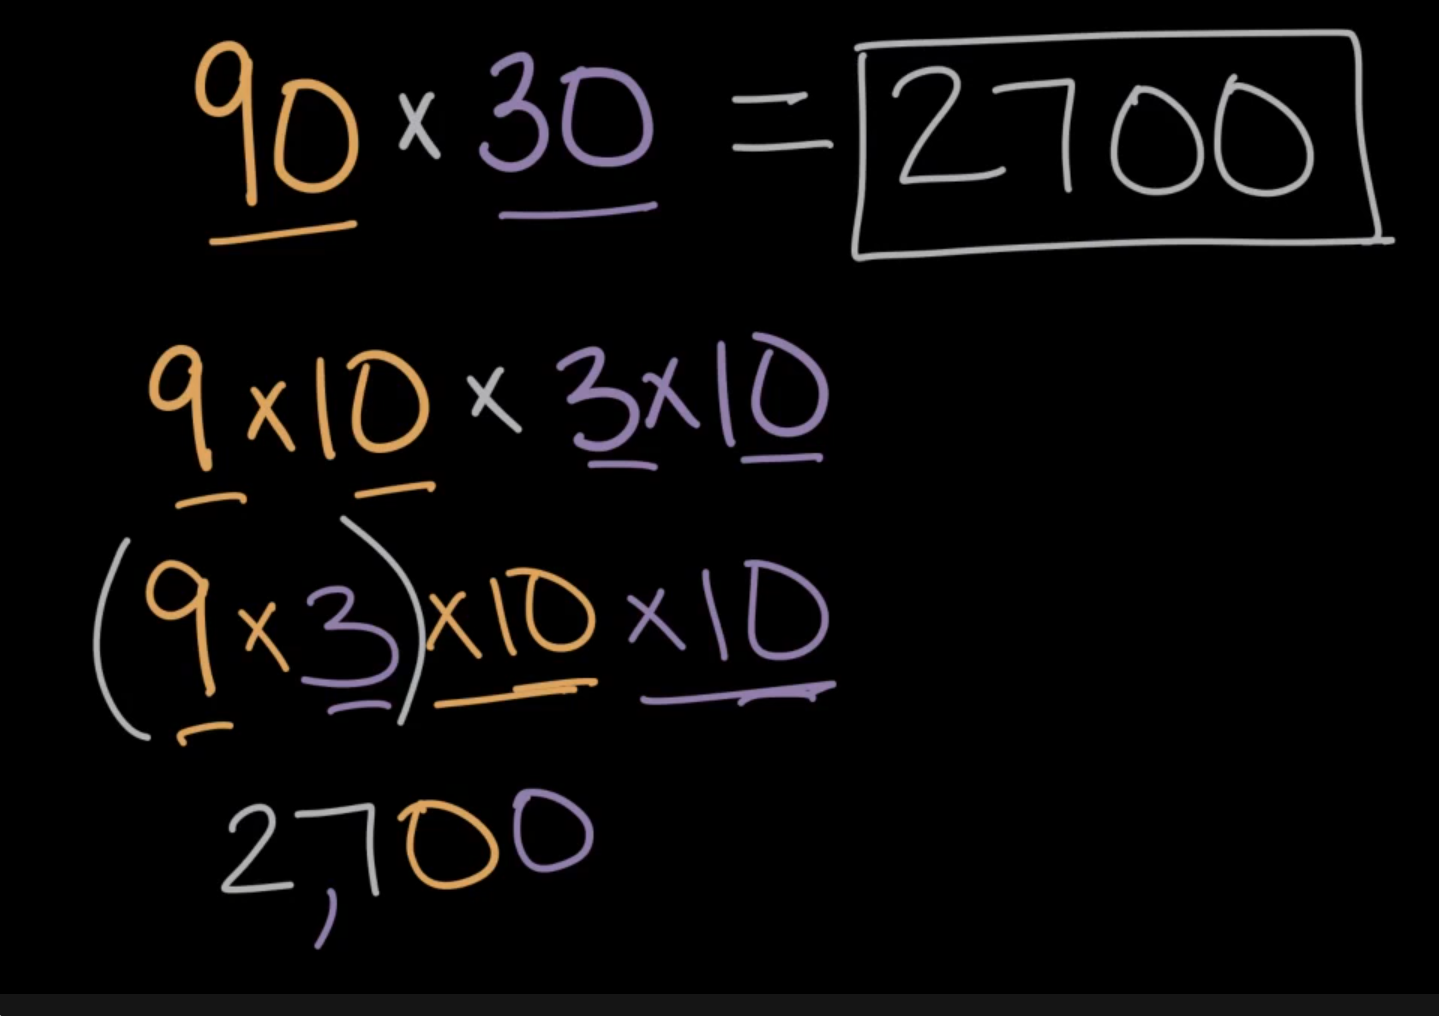 90 × 30 = 2700
9 × 10 × 3 × 10
(9 × 3) × 10 × 10
2,700